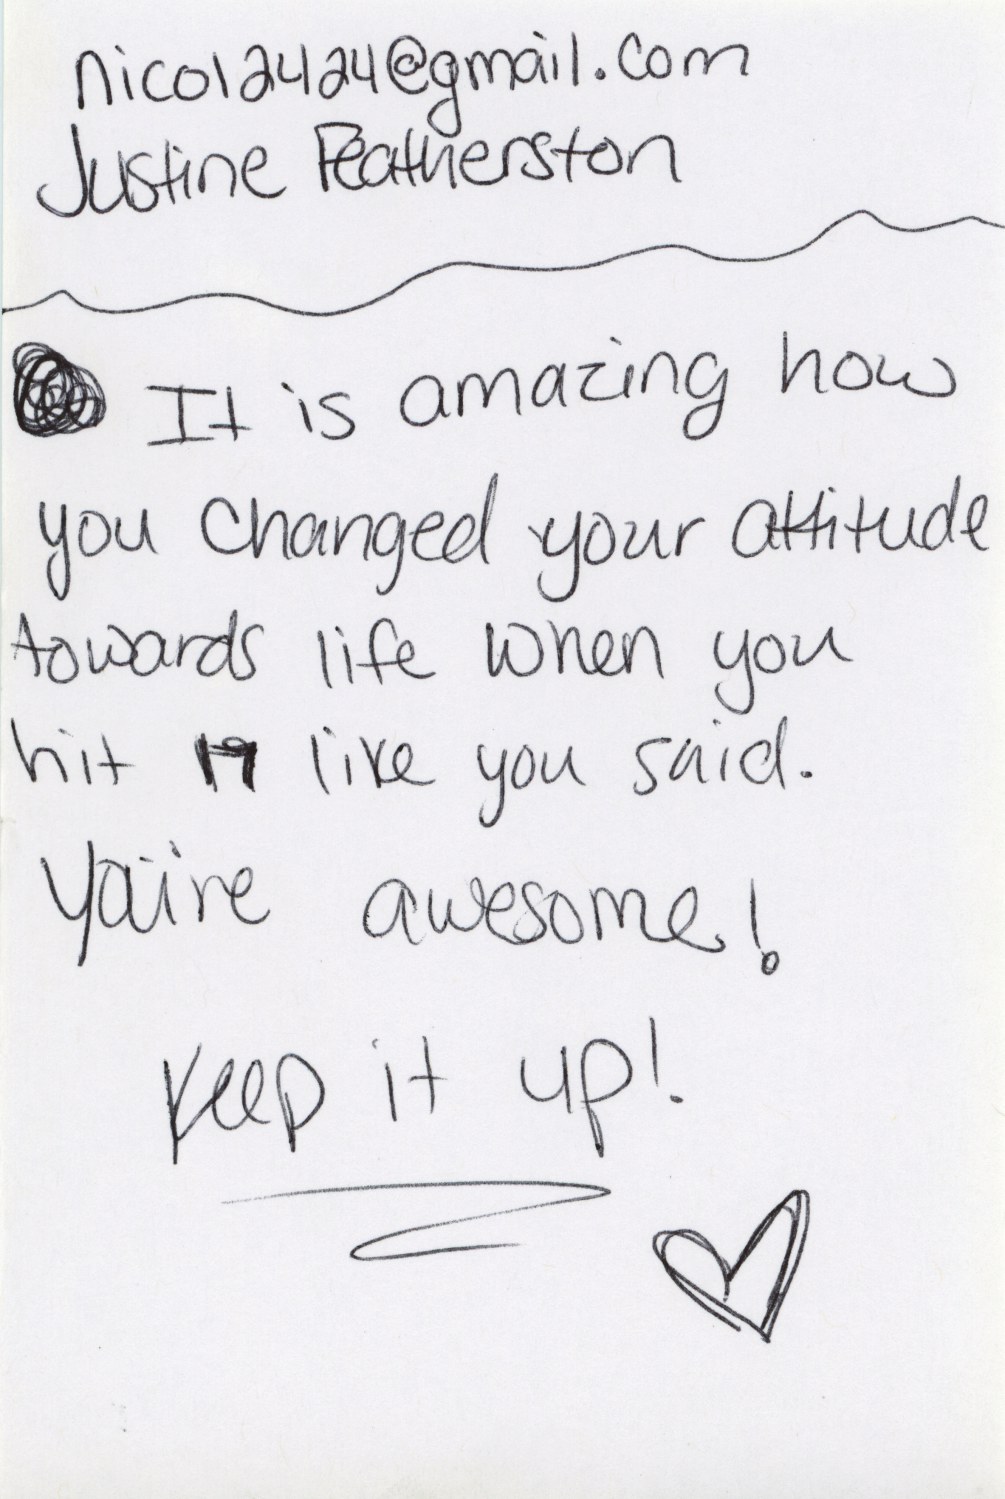 nicol2424@gmail.com
Justine Featherston
It is amazing how
you changed your attitude
towards life when you
hit 19 like you said.
You're awesome!
Keep it up!